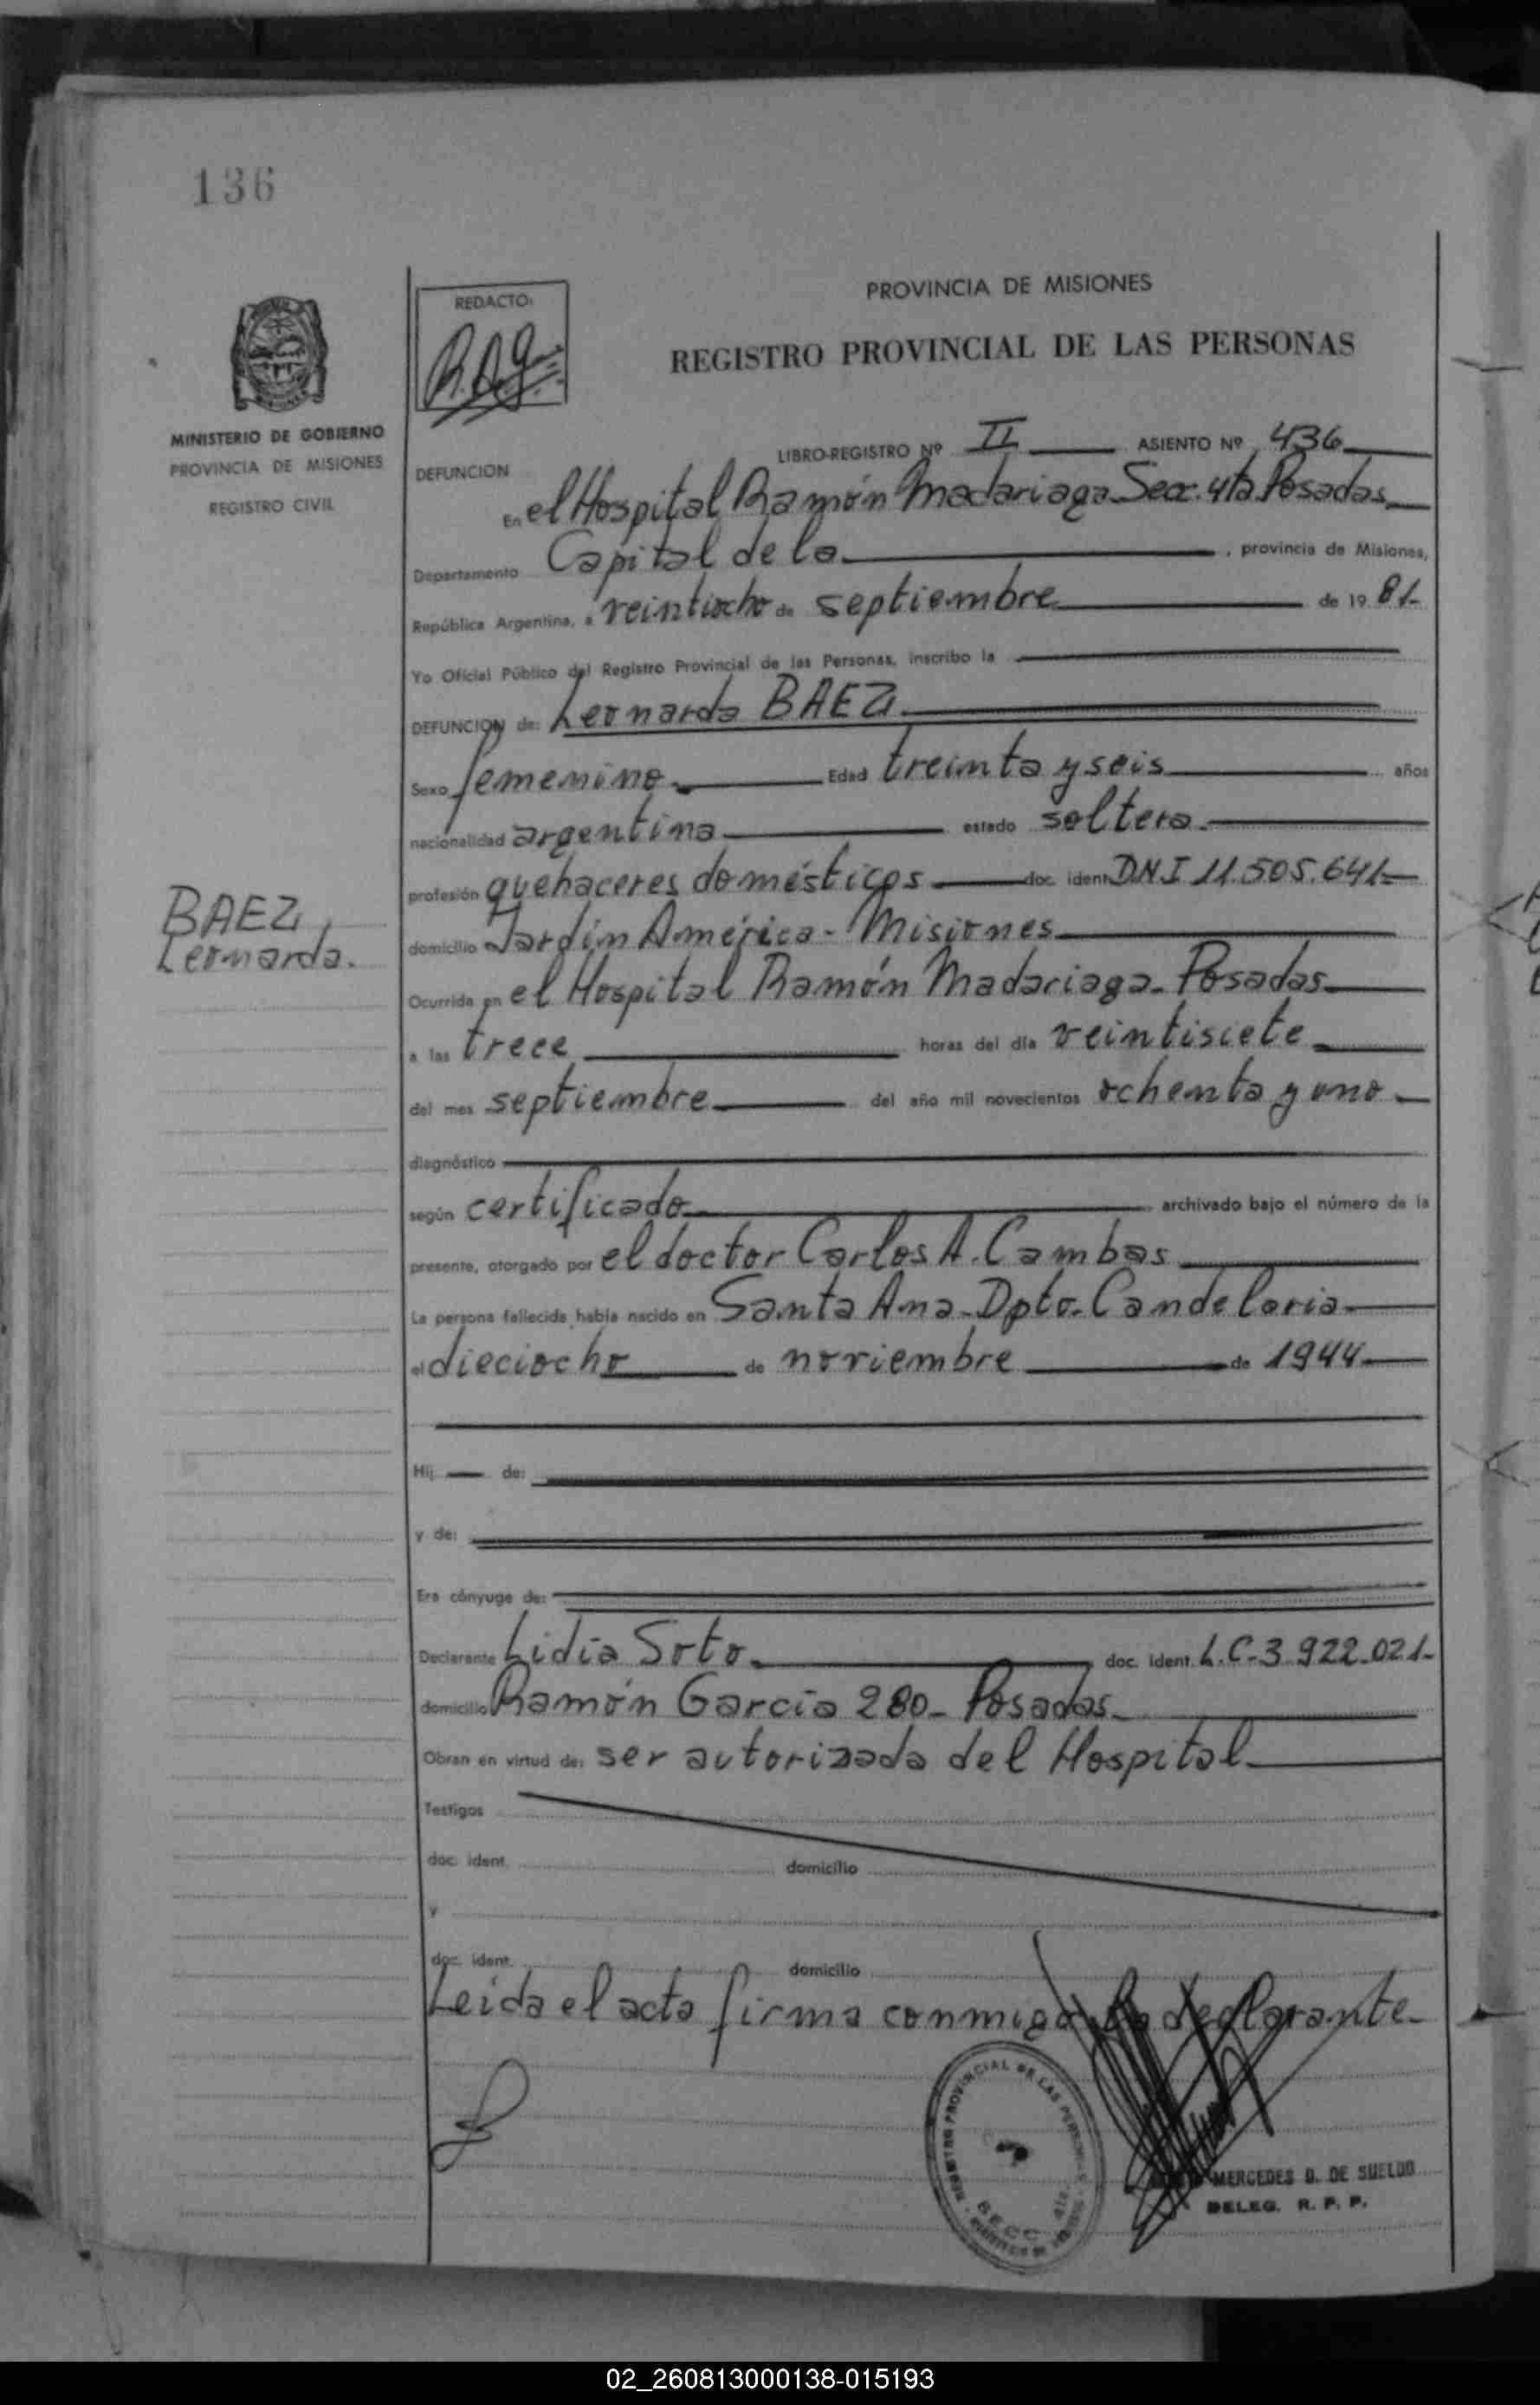 136
REDACTO:
PROVINCIA DE MISIONES
REGISTRO PROVINCIAL DE LAS PERSONAS
MINISTERIO DE GOBIERNO
PROVINCIA DE MISIONES
REGISTRO CIVIL
LIBRO-REGISTRO Nº II ASIENTO Nº 436
DEFUNCION
En el Hospital Ramón Madariaga Secc. 4ta Posadas
Departamento Capital de la , provincia de Misiones,
República Argentina, a veintiocho de septiembre de 19 81
Yo Oficial Público del Registro Provincial de las Personas, inscribo la
DEFUNCION de: Leonarda BAEZ
Sexo femenino Edad treinta y seis años
nacionalidad argentina estado soltera
profesión quehaceres domésticos doc. ident. DNI 11.505.641
BAEZ,
Leonarda.
domicilio Jardín América - Misiones
Ocurrida en el Hospital Ramón Madariaga - Posadas
a las trece horas del día veintisiete
del mes septiembre del año mil novecientos ochenta y uno
diagnóstico
según certificado archivado bajo el número de la
presente, otorgado por el doctor Carlos A. Cambas
La persona fallecida había nacido en Santa Ana - Dpto. Candelaria
el dieciocho de noviembre de 1944
Hij de:
y de:
Era cónyuge de:
Declarante Lidia Soto doc. ident. L.C. 3.922.021
domicilio Ramón García 280 - Posadas
Obran en virtud de: ser autorizada del Hospital
Testigos
doc. ident. domicilio
y
doc. ident. domicilio
Leida el acta firma conmigo la declarante
REGISTRO PROVINCIAL DE LAS PERSONAS
SECC. 4ta.
MERCEDES D. DE SUELDO
DELEG. R. P. P.
02_260813000138-015193